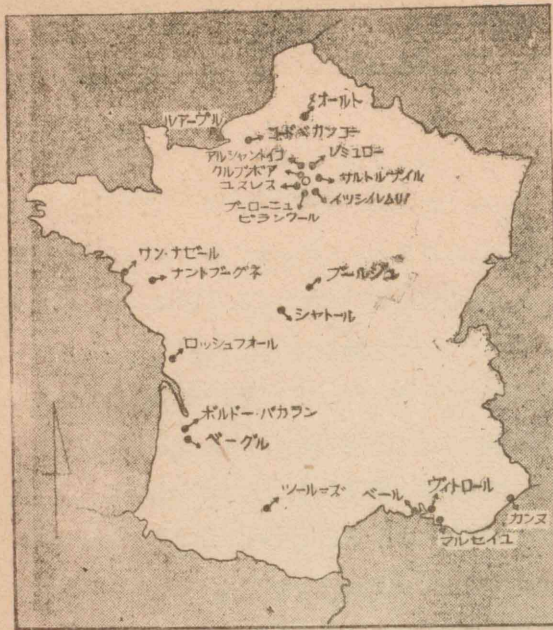 オールト
ルアーブル
コードベカンコー
アルジャントイユ
レミュロー
クルブボア
サルトルヴィル
ユスレス
イッシイレムリノ
ブーローニュ
ビランクール
サン・ナゼール
ナントブーグネ
ブールジュ
シャトール
ロッシュフォール
ボルドー・バカラン
ベーグル
ツールーズ
ベール
ヴィトロール
カンヌ
マルセイユ